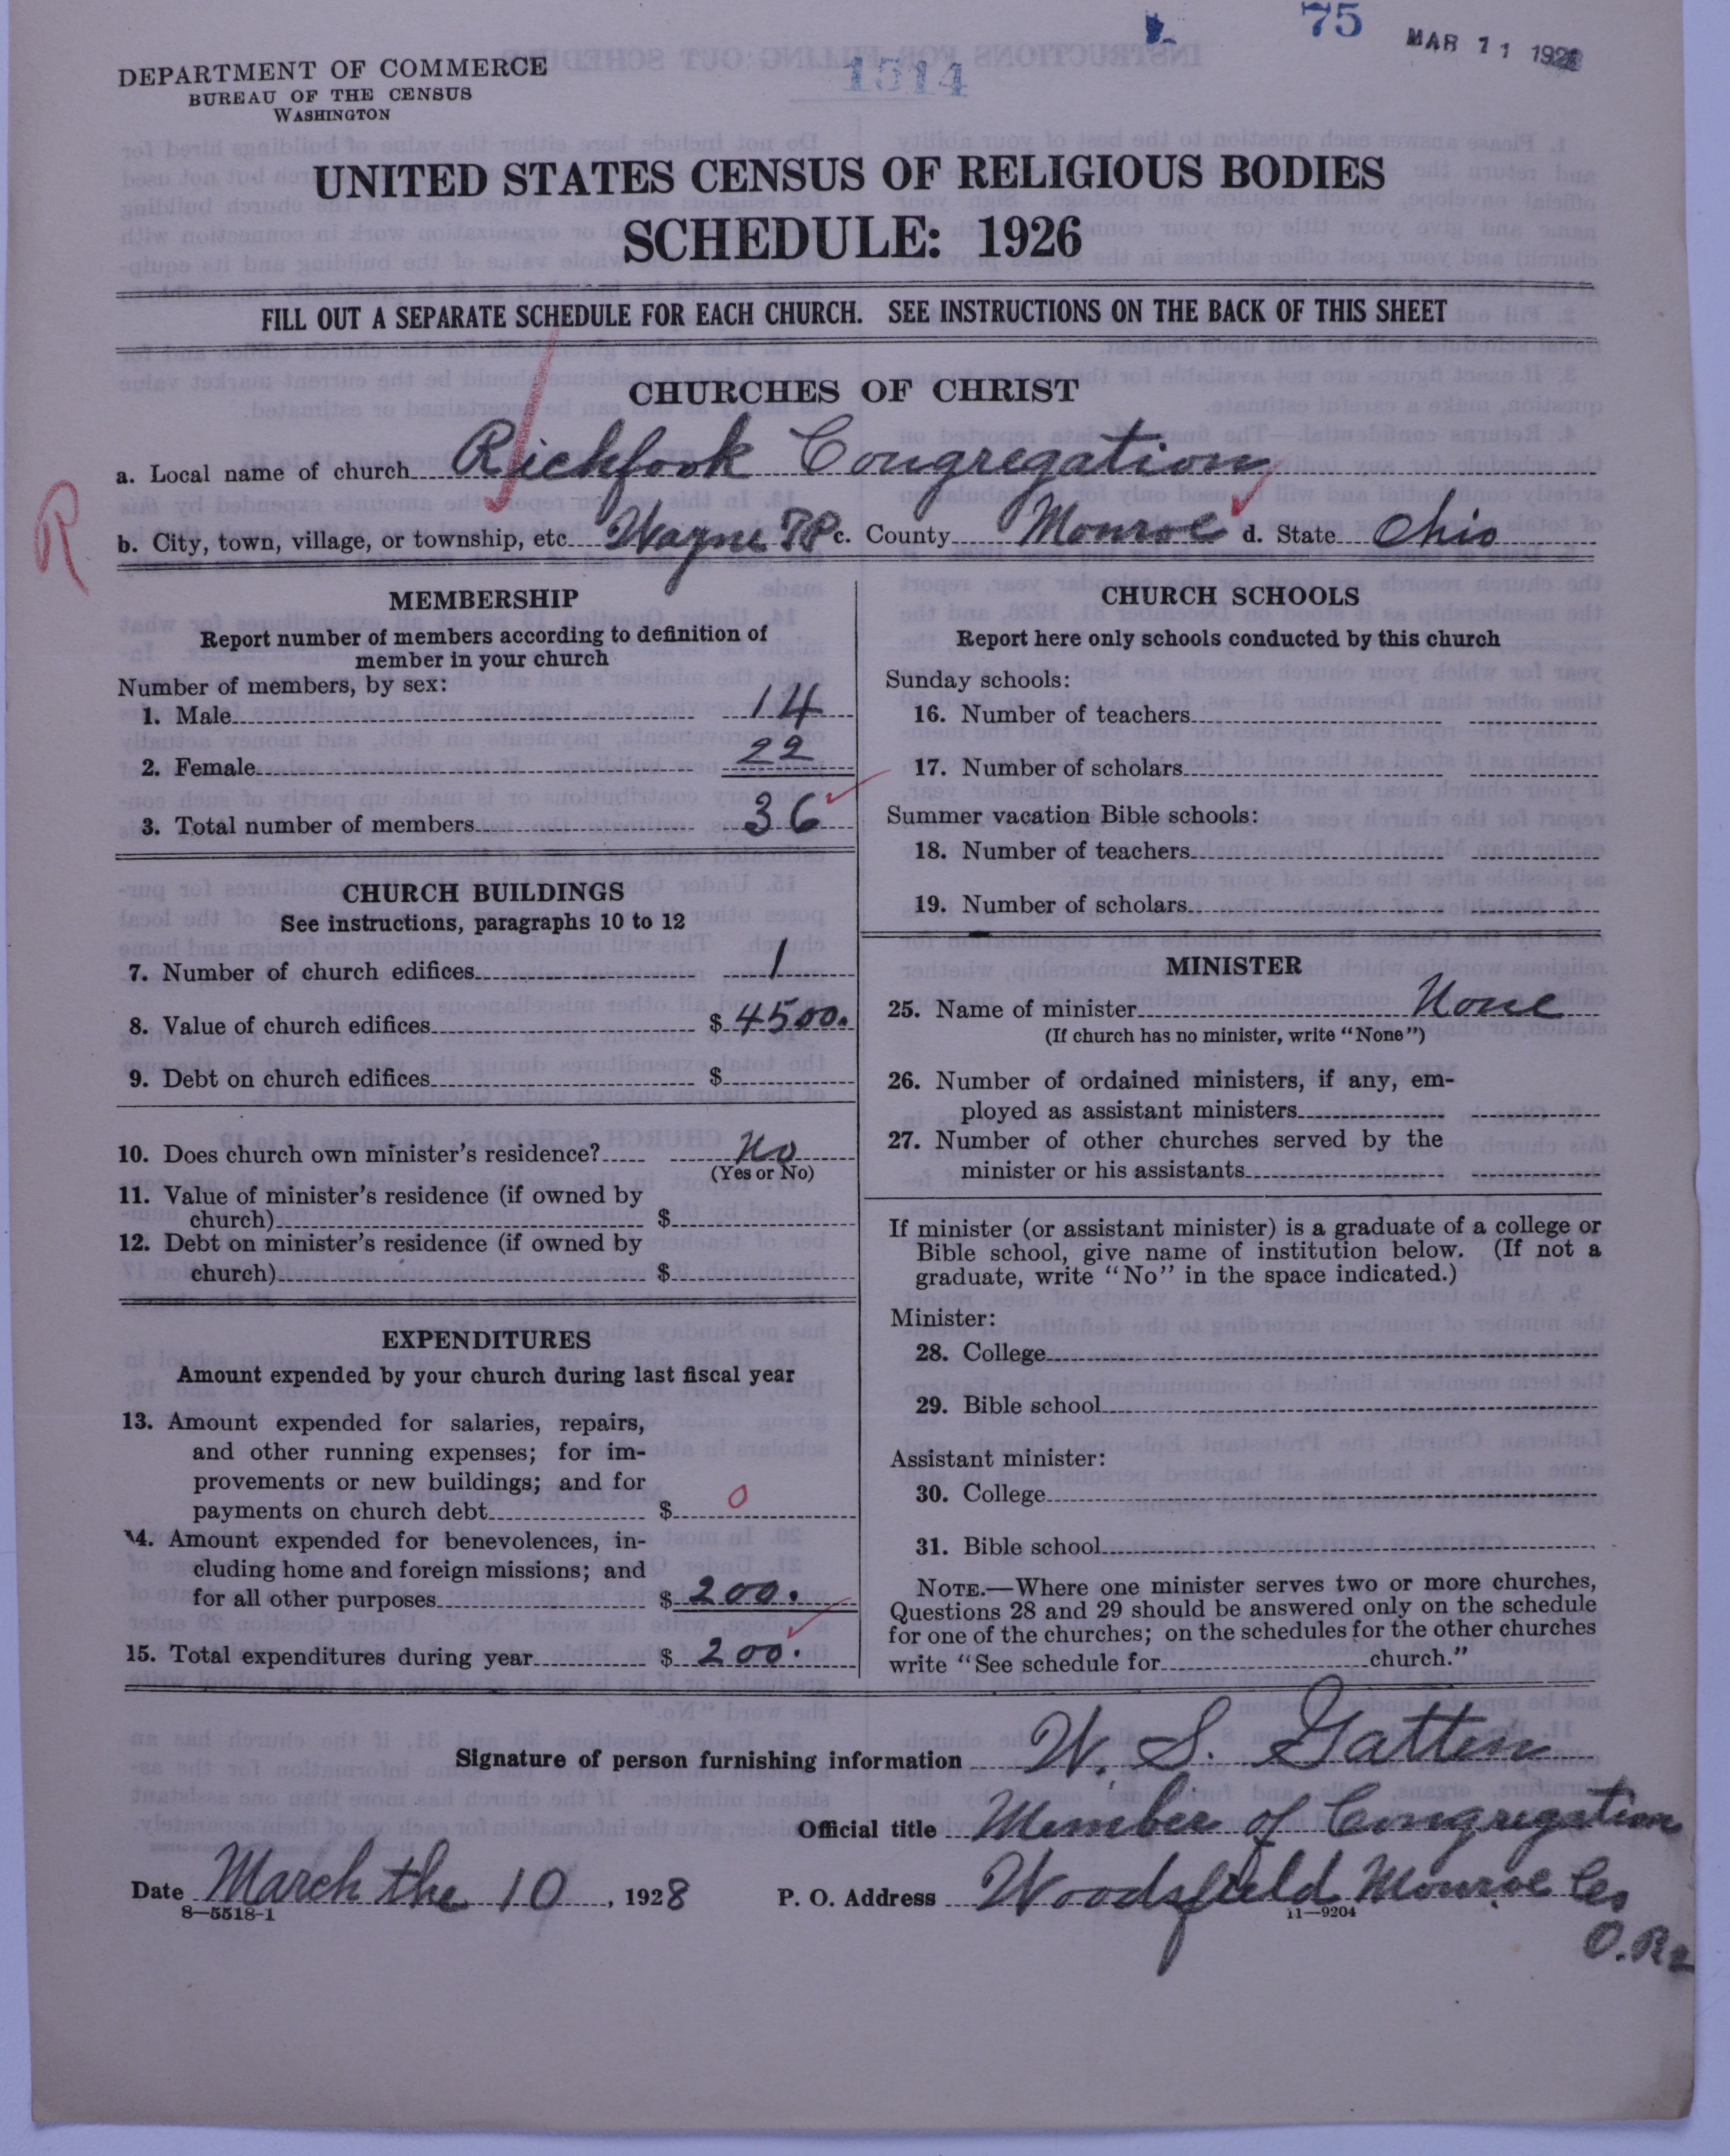 75
MAR 11 1928
1514
DEPARTMENT OF COMMERCE
BUREAU OF THE CENSUS
WASHINGTON
UNITED STATES CENSUS OF RELIGIOUS BODIES
SCHEDULE: 1926
FILL OUT A SEPARATE SCHEDULE FOR EACH CHURCH. SEE INSTRUCTIONS ON THE BACK OF THIS SHEET
CHURCHES OF CHRIST
a. Local name of church Richfork Congregation
R
b. City, town, village, or township, etc. Wayne TP c. County Monroe d. State Ohio
MEMBERSHIP
Report number of members according to definition of
member in your church
Number of members, by sex:
1. Male 14
2. Female 22
3. Total number of members 36
CHURCH BUILDINGS
See instructions, paragraphs 10 to 12
7. Number of church edifices 1
8. Value of church edifices $ 4500.
9. Debt on church edifices $
10. Does church own minister's residence? No
(Yes or No)
11. Value of minister's residence (if owned by
church) $
12. Debt on minister's residence (if owned by
church) $
EXPENDITURES
Amount expended by your church during last fiscal year
13. Amount expended for salaries, repairs,
and other running expenses; for im-
provements or new buildings; and for
payments on church debt $ 0
14. Amount expended for benevolences, in-
cluding home and foreign missions; and
for all other purposes $ 200.
15. Total expenditures during year $ 200.
CHURCH SCHOOLS
Report here only schools conducted by this church
Sunday schools:
16. Number of teachers
17. Number of scholars
Summer vacation Bible schools:
18. Number of teachers
19. Number of scholars
MINISTER
25. Name of minister None
(If church has no minister, write "None")
26. Number of ordained ministers, if any, em-
ployed as assistant ministers
27. Number of other churches served by the
minister or his assistants
If minister (or assistant minister) is a graduate of a college or
Bible school, give name of institution below. (If not a
graduate, write "No" in the space indicated.)
Minister:
28. College
29. Bible school
Assistant minister:
30. College
31. Bible school
NOTE.—Where one minister serves two or more churches,
Questions 28 and 29 should be answered only on the schedule
for one of the churches; on the schedules for the other churches
write "See schedule for church."
Signature of person furnishing information W. S. Gatten
Official title Member of Congregation
Date March the 10, 1928 P. O. Address Woodsfield Monroe Co
8—5518-1
11—9204
O. R2